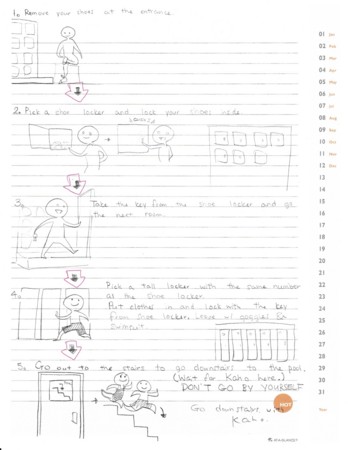 1. Remove your shoes at the entrance.
2. Pick a shoe locker and lock your shoes inside.
3. Take the key from the shoe locker and go
the next room.
4. Pick a tall locker with the same number
at the shoe locker.
Put clothes in and lock with the key
from shoe locker. Leave w/ goggles &
Swimsuit.
5. Go out to the stairs to go downstairs to the pool.
(Wait for Kaho here.)
DON'T GO BY YOURSELF
Go downstairs with
Kaho.
01
02
03
04
05
06
07
08
09
10
11
12
13
14
15
16
17
18
19
20
21
22
23
24
25
26
27
28
29
30
31